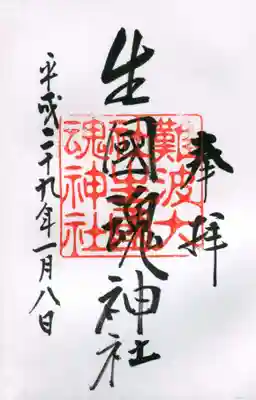 奉拝
生國魂神社
平成二十九年一月八日
難波大
社生國
魂神社